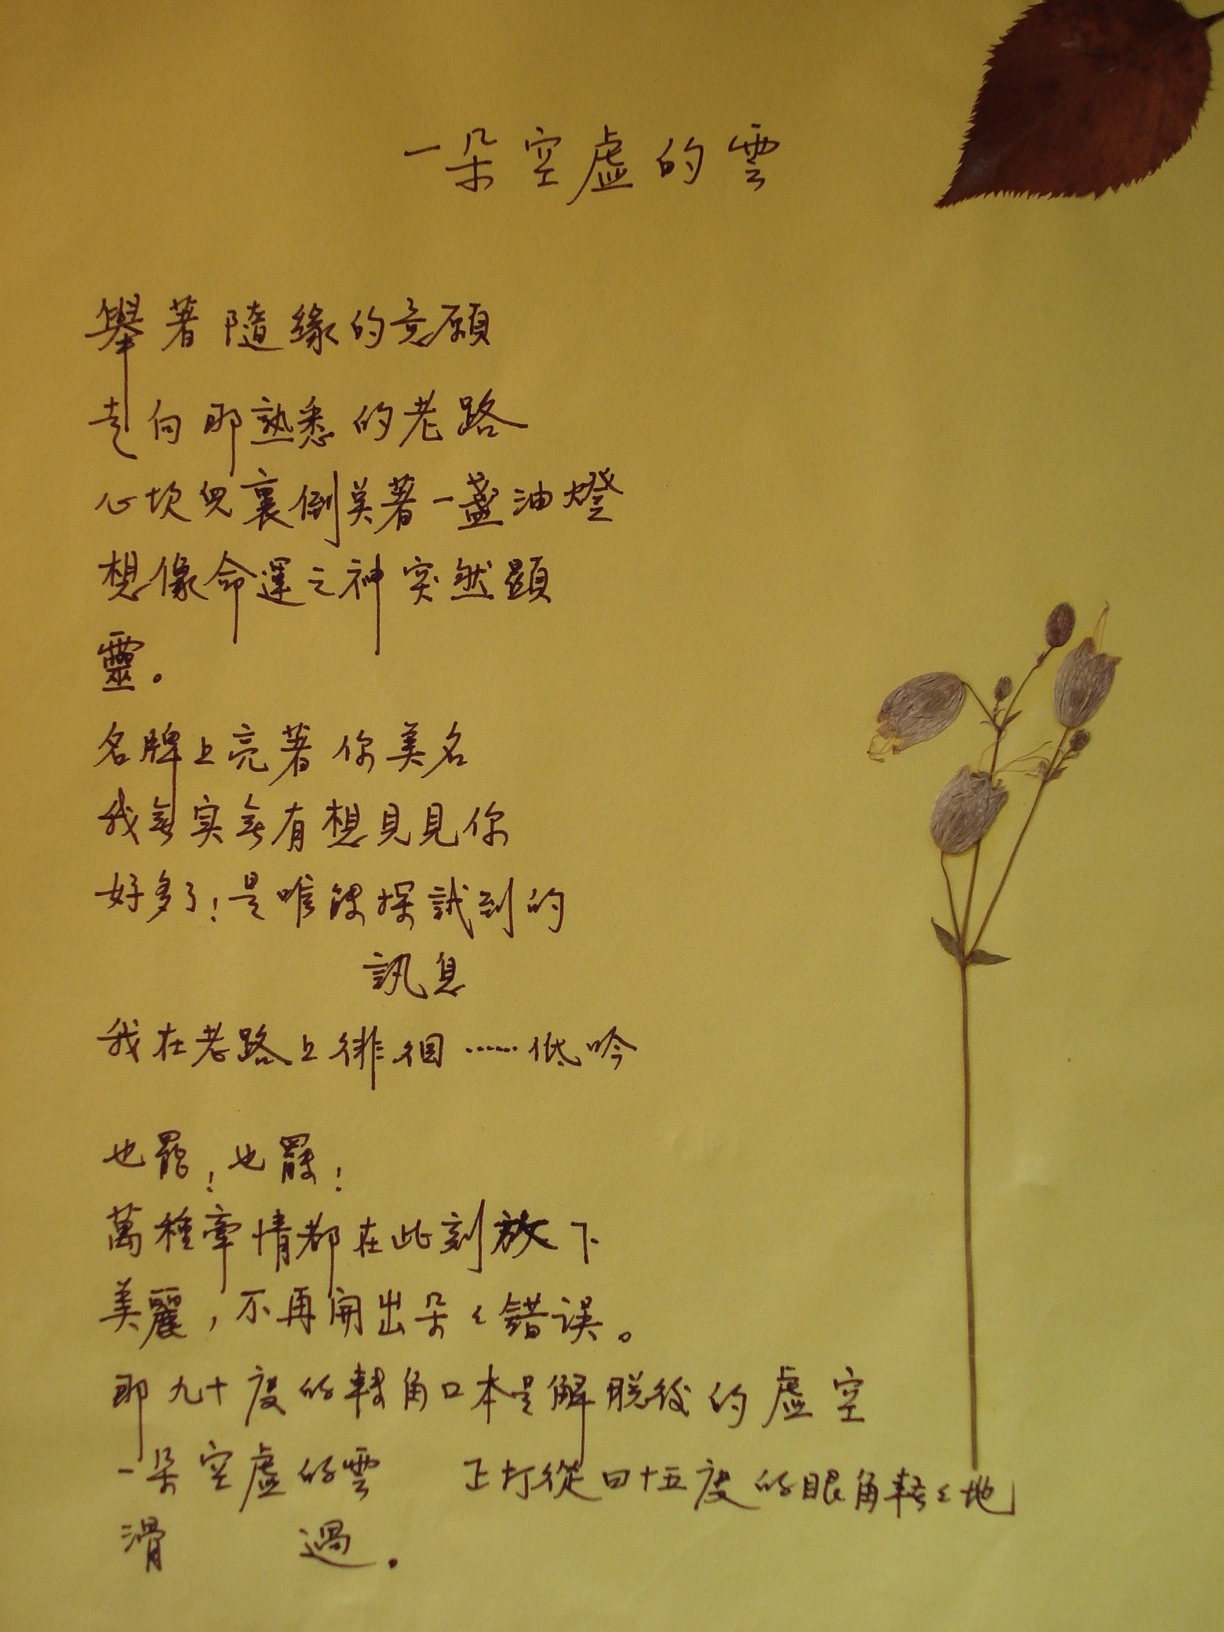 一朵空虛的雲
舉著隨緣的意願
走向那熟悉的老路
心坎兒裏倒美著一盞油燈
想像命運之神突然顯
靈。
名牌上亮著你美名
我委实委有想見見你
好多了!是唯探試到的
訊息
我在老路上徘徊……低吟
也罷!也罷!
萬種牽情都在此刻放下
美麗,不再開出朵々錯误。
那九十度的轉角口本是解脱後的虛空
一朵空虛的雲 正打從四十五度的眼角輕々地
滑 過.